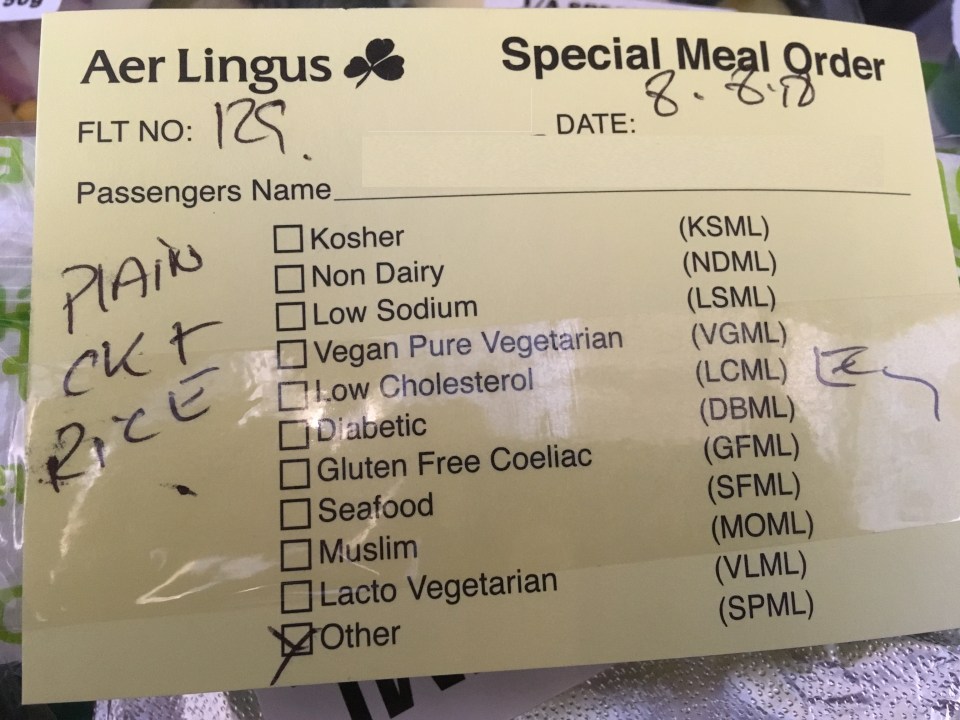 Aer Lingus
Special Meal Order
FLT NO: 129.
DATE: 8.8.18
Passengers Name
PLAIN
CK +
RICE
Kosher (KSML)
Non Dairy (NDML)
Low Sodium (LSML)
Vegan Pure Vegetarian (VGML)
Low Cholesterol (LCML)
Diabetic (DBML)
Gluten Free Coeliac (GFML)
Seafood (SFML)
Muslim (MOML)
Lacto Vegetarian (VLML)
Other (SPML)